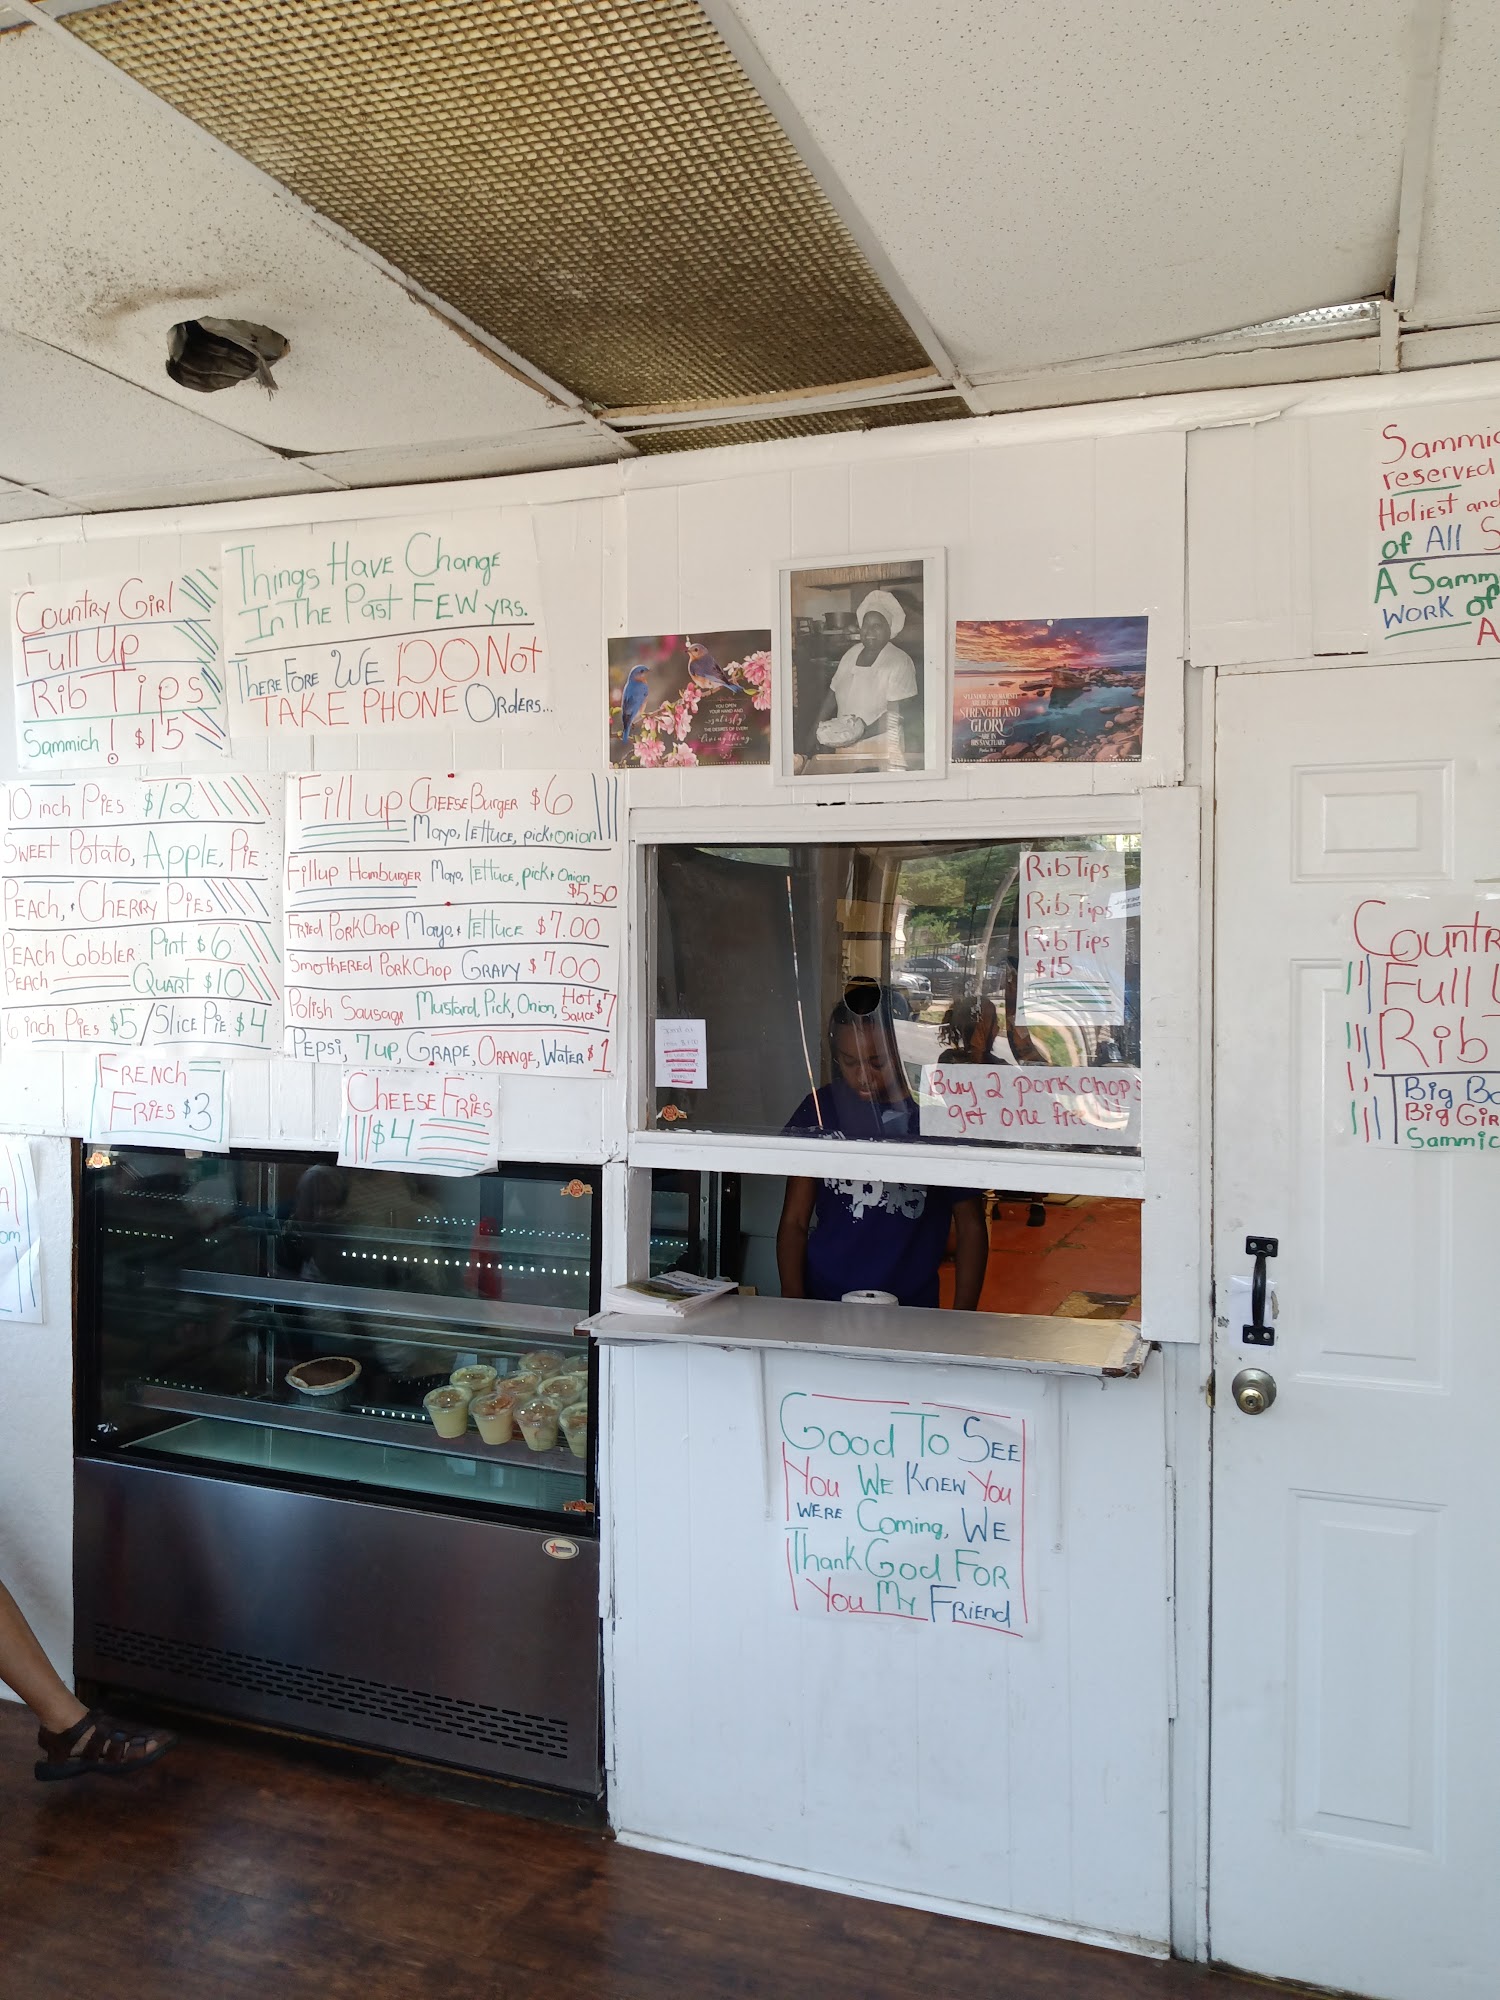 Country Girl
Full Up
Rib Tips
Sammich! $15
Things Have Change
In The Past Few yrs.
Therefore We DO Not
TAKE PHONE Orders...
10 inch Pies $12
Sweet Potato, Apple, Pie
Peach, + Cherry Pies
Peach Cobbler Pint $6
Peach Quart $10
6 inch Pies $5/Slice Pie $4
French
Fries $3
Fill up CheeseBurger $6
Mayo, lettuce, pick+onion
Fillup Hamburger Mayo, lettuce, pick+Onion
$5.50
Fried PorkChop Mayo, + lettuce $7.00
Smothered PorkChop Gravy $7.00
Polish Sausage Mustard, Pick, Onion, Hot Sauce $7
Pepsi, 7up, Grape, Orange, Water $1
Cheese Fries
$4
YOU OPEN
YOUR HAND AND
satisfy
THE DESIRES OF EVERY
living thing.
SPLENDOR AND MAJESTY
ARE BEFORE HIM;
STRENGTH AND
GLORY
ARE IN
HIS SANCTUARY.
Rib Tips
Rib Tips
Rib Tips
$15
Buy 2 pork chops
get one free!!!
Good To See
You We Knew You
were Coming, We
Thank God For
You My Friend
Sammic
reserved
Holiest and
of All S
A Samm
Work of
A
Countr
Full U
Rib T
Big Bo
Big Gir
Sammic